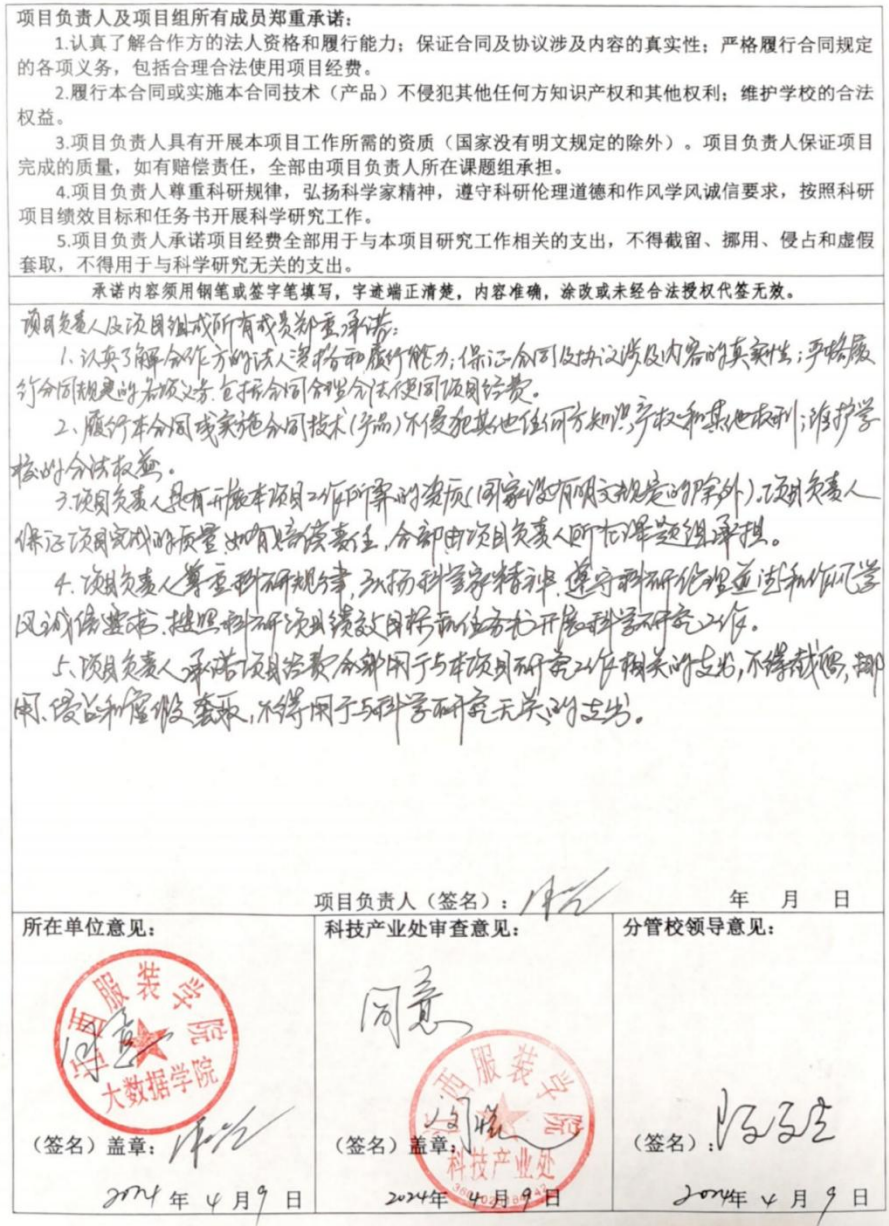 项目负责人及项目组所有成员郑重承诺：
1.认真了解合作方的法人资格和履行能力；保证合同及协议涉及内容的真实性；严格履行合同规定
的各项义务，包括合理合法使用项目经费。
2.履行本合同或实施本合同技术（产品）不侵犯其他任何方知识产权和其他权利；维护学校的合法
权益。
3.项目负责人具有开展本项目工作所需的资质（国家没有明文规定的除外）。项目负责人保证项目
完成的质量，如有赔偿责任，全部由项目负责人所在课题组承担。
4.项目负责人尊重科研规律，弘扬科学家精神，遵守科研伦理道德和作风学风诚信要求，按照科研
项目绩效目标和任务书开展科学研究工作。
5.项目负责人承诺项目经费全部用于与本项目研究工作相关的支出，不得截留、挪用、侵占和虚假
套取，不得用于与科学研究无关的支出。
承诺内容须用钢笔或签字笔填写，字迹端正清楚，内容准确，涂改或未经合法授权代签无效。
项目负责人及项目组成所有成员郑重承诺：
1.认真了解合作方的法人资格和履行能力；保证合同及协议涉及内容的真实性；严格履
行合同规定的各项义务，包括合同合理合法使用项目经费。
2、履行本合同或实施合同技术（产品）不侵犯其他任何方知识产权和其他权利；维护学
校的合法权益。
3.项目负责人具有开展本项目工作所需的资质（国家没有明文规定的除外）。项目负责人
保证项目完成的质量，如有赔偿责任，全部由项目负责人所在课题组承担。
4.项目负责人尊重科研规律，弘扬科学家精神，遵守科研伦理道德和作风学
风诚信要求，按照科研项目绩效目标和任务书开展科学研究工作。
5、项目负责人承诺项目经费全部用于与本项目研究工作相关的支出，不得截留，挪
用、侵占和虚假套取，不得用于与科学研究无关的支出。
项目负责人（签名）： 年 月 日
所在单位意见：
同意
江西服装学院
大数据学院
（签名）盖章：
2024年4月9日
科技产业处审查意见：
同意
江西服装学院
科技产业处
（签名）盖章：
2024年4月9日
分管校领导意见：
（签名）：
2024年4月9日